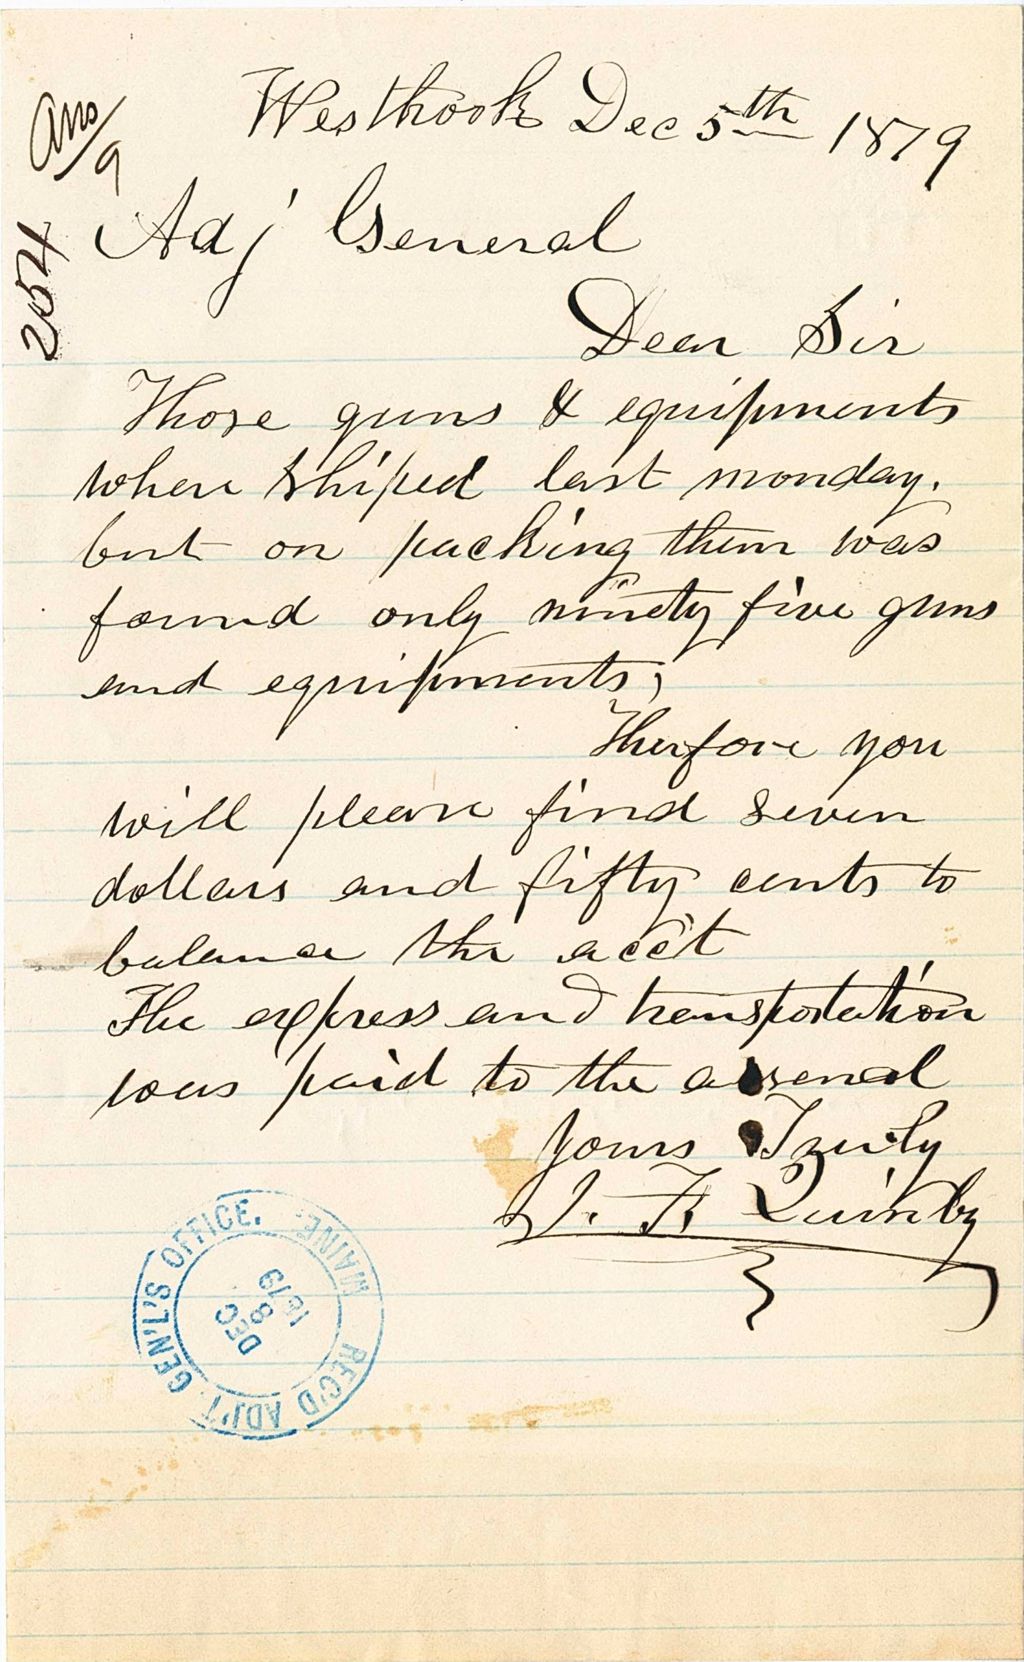 Westbrook Dec 5th 1879
Ans 9
2054
Adj General
Dear Sir
Those guns & equipments
where shiped last monday.
but on packing them was
found only ninety five guns
and equipments;
Therfore you
will please find seven
dollars and fifty cents to
balance the acc't
The express and transportation
was paid to the arsenal
Yours Truly
J. F. Quimby
REC'D ADJ'T. GEN'L'S OFFICE. MAINE.
DEC
8
1879